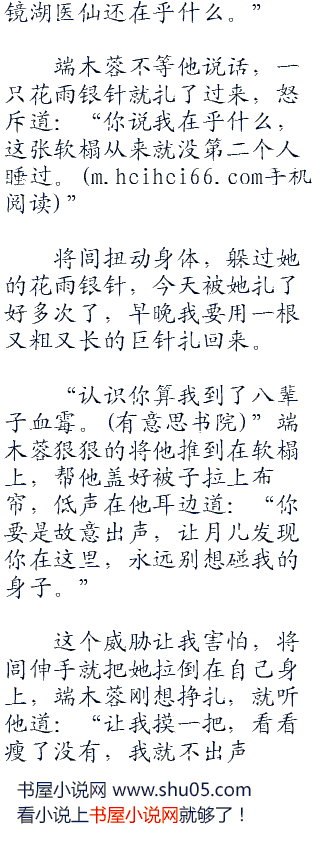 镜湖医仙还在乎什么。”
端木蓉不等他说话，一
只花雨银针就扎了过来，怒
斥道：“你说我在乎什么，
这张软榻从来就没第二个人
睡过。(m.hcihci66.com手机
阅读)”
将闾扭动身体，躲过她
的花雨银针，今天被她扎了
好多次了，早晚我要用一根
又粗又长的巨针扎回来。
“认识你算我到了八辈
子血霉。(有意思书院)”端
木蓉狠狠的将他推到在软榻
上，帮他盖好被子拉上布
帘，低声在他耳边道：“你
要是故意出声，让月儿发现
你在这里，永远别想碰我的
身子。”
这个威胁让我害怕，将
闾伸手就把她拉倒在自己身
上，端木蓉刚想挣扎，就听
他道：“让我摸一把，看看
瘦了没有，我就不出声
书屋小说网 www.shu05.com
看小说上书屋小说网就够了！